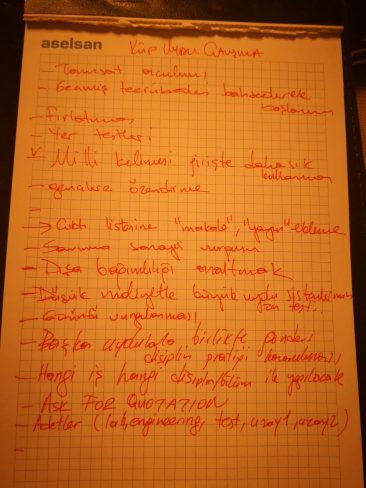 aselsan
KÜP UYDU ÇALIŞMA
- Tamsat
- Geçmiş tecrübeden bahsederek
başlanması
- Fırlatma
- Yer testleri
V Milli kelimesi girişte daha sık
kullanma
- gençlere özendirme
-
-> Çıktı listerine "makale", "yayın" ekleme
- Savunma sanayi vurgusu
- Dışa bağımlılığı azaltmak
- Düşük maliyetle büyük uydu sistemlerinin
test.
- Görüntü vurgulanması
- Başka uydularla birlikte
disiplin pratiği
- Hangi iş hangi disiplin/bölüm ile yapılacak
- ASK FOR QUOTATION
- Adetler (lab, engineering, test, uzay1, uzay2)
-